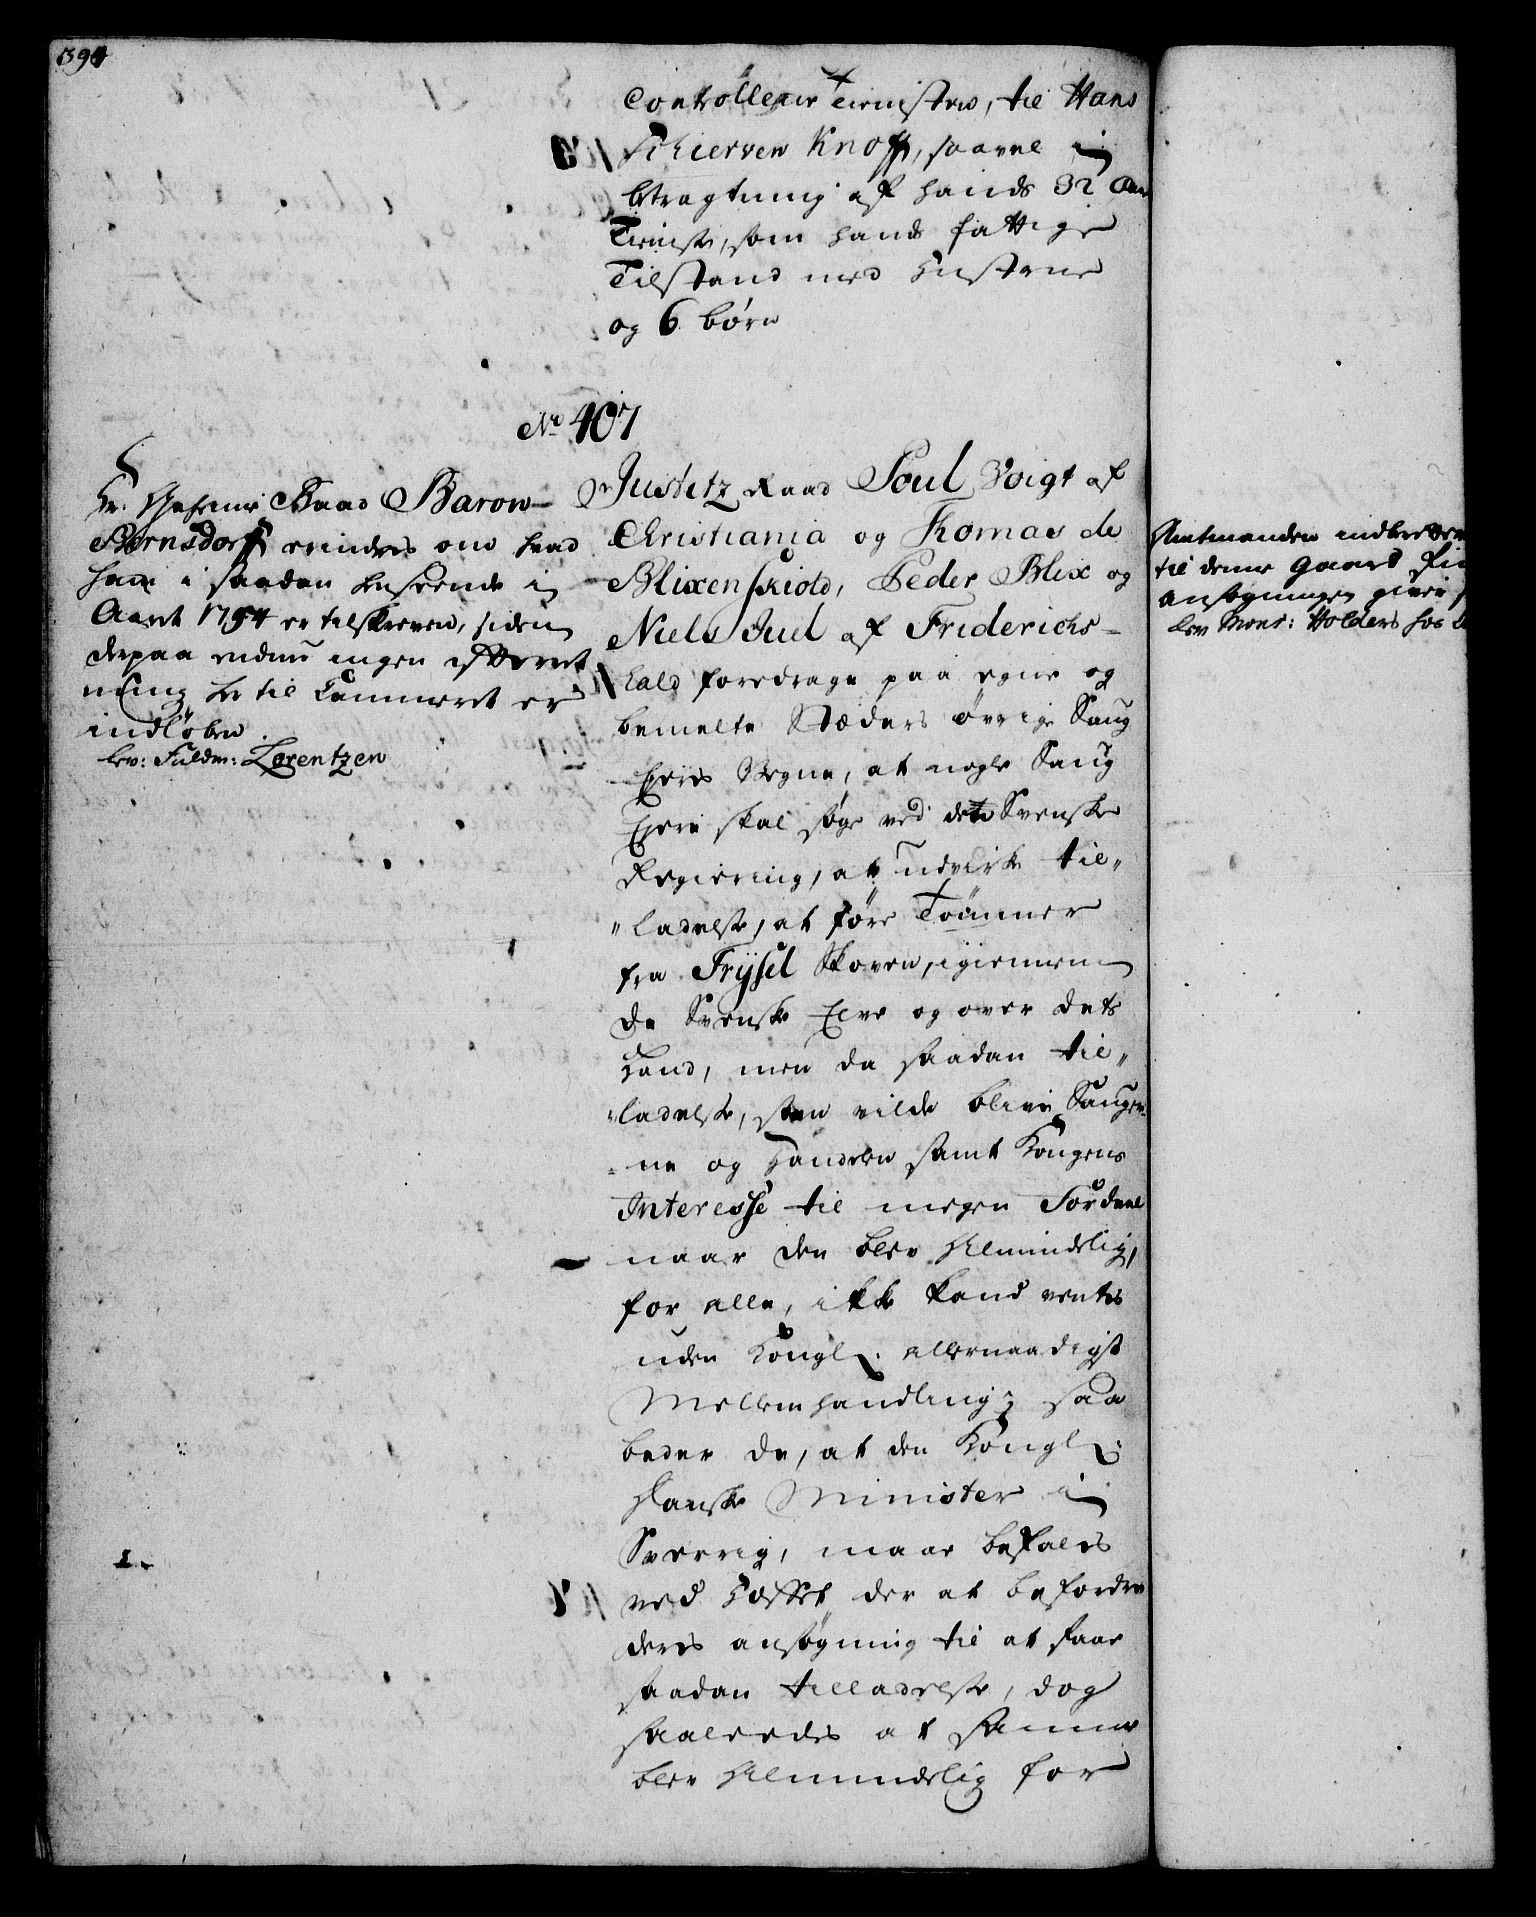 394
Controlleur Tienisten, til Hans
Schierven Knoff, saavel i
betragtning af hands 32 Aars
Tieniste, som hands fattige
Tilstand med Hustrue
og 6 børn
No 407
Hr. Geheime Raad Baron
Bernsdorff erindres om hvad
ham i saadan henseende i
Aaret 1754 er tilskreven, siden
derpaa endnu ingen efterret
ning her til Cammeret er
indløben.
lev: Fuldm: Lorentzen
Justitz Raad Poul Voigt af
Christiania og Thomas de
Blixenskiold, Peder Blix og
Niels Juel af Friderichs-
hald foredrage paa egne og
bemelte Stæders øvrige Saug
Eyeres Vegne, at nogle Saug
Eyere skal søge ved den Svenske
Regiering, at udvirke til„
„ladelse, at føre Tømmer
fra Trysil Skoven, igiennem
de Svenske Elve og over dets
Land, men da saadan til„
„ladelse, som vilde blive Sauger-
ne og Handelen samt Kongens
Interesse til megen Fordeel
naar den blev Almindelig,
for alle, ikke kand ventes
uden Kongl. allernaadigst
Mellemhandling; saa
beder de, at den Kongl.
Danske Minister i
Sverrig, maae befales
ved Hoffet der at befordre
deres ansøgning til at faae
saadan tilladelse, dog
saaledes at samme
blev Almindelig for
Amtmanden indberetter
til denne Gaard
ansøgningen giver
lev Mons: Holders hos